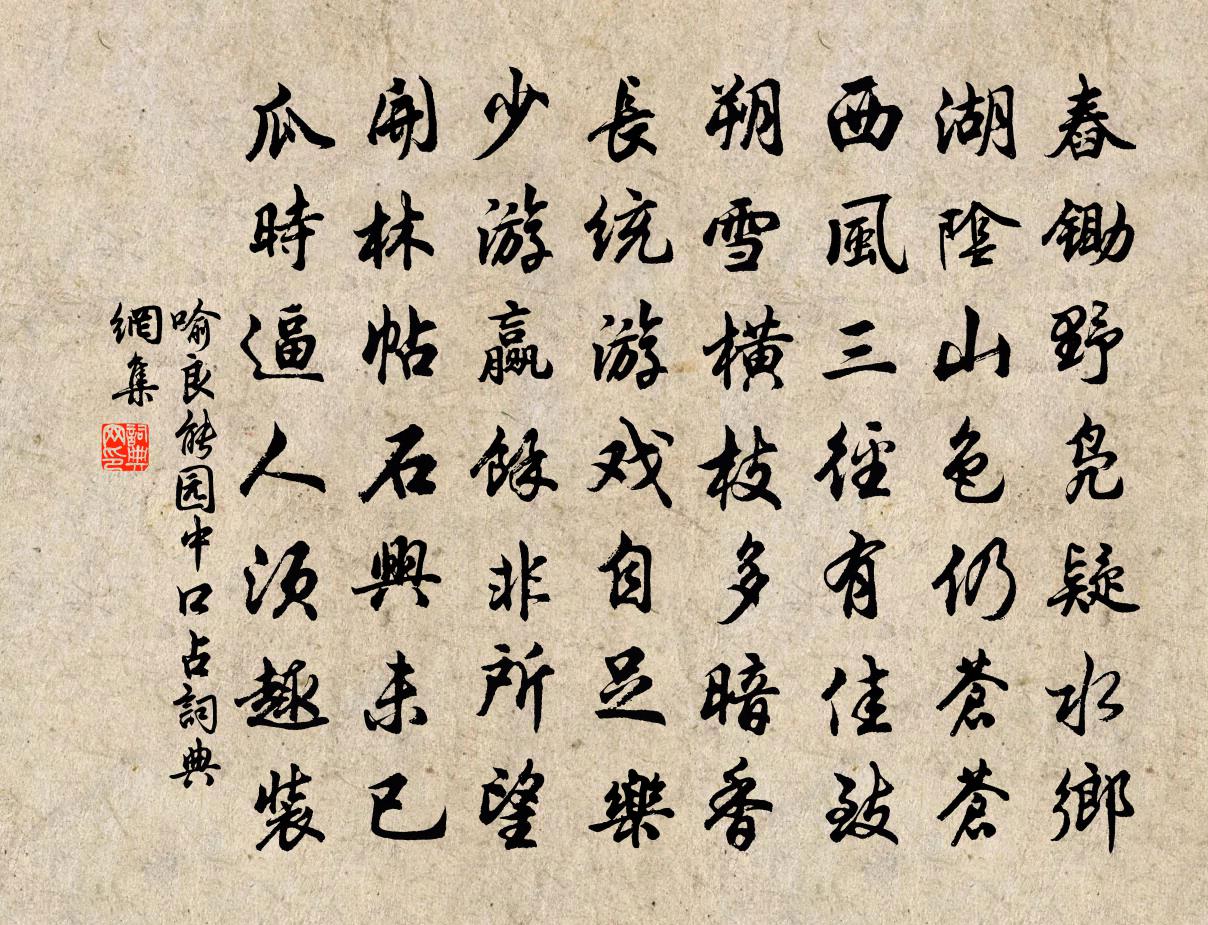 舂鋤野鳧疑水鄉
湖陰山色仍蒼蒼
西風三徑有佳致
朔雪橫枝多暗香
長統游戏自足樂
少游贏餘非所望
開林帖石興未已
瓜時逼人須趣裝
喻良能园中口占詞典
網集
詞典网印